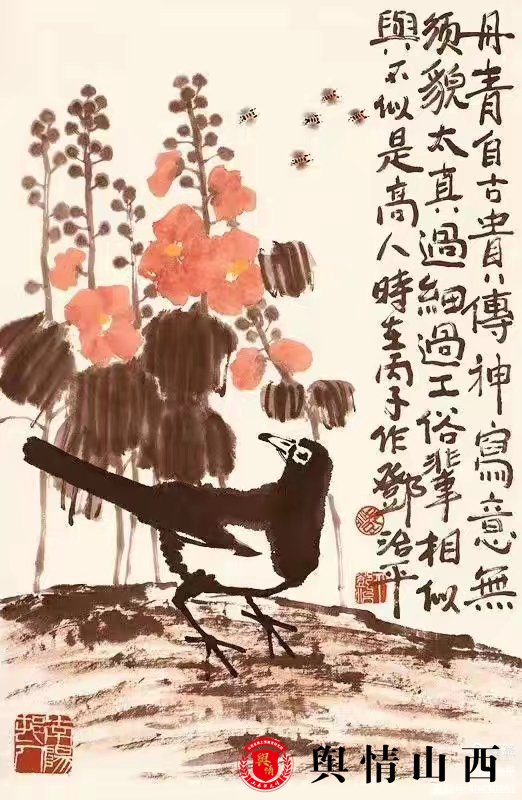 丹青自古貴傳神寫意無
須貌太真過細過工俗輩相似
與不似是高人時在丙子作鄧治平
舆情
舆情山西